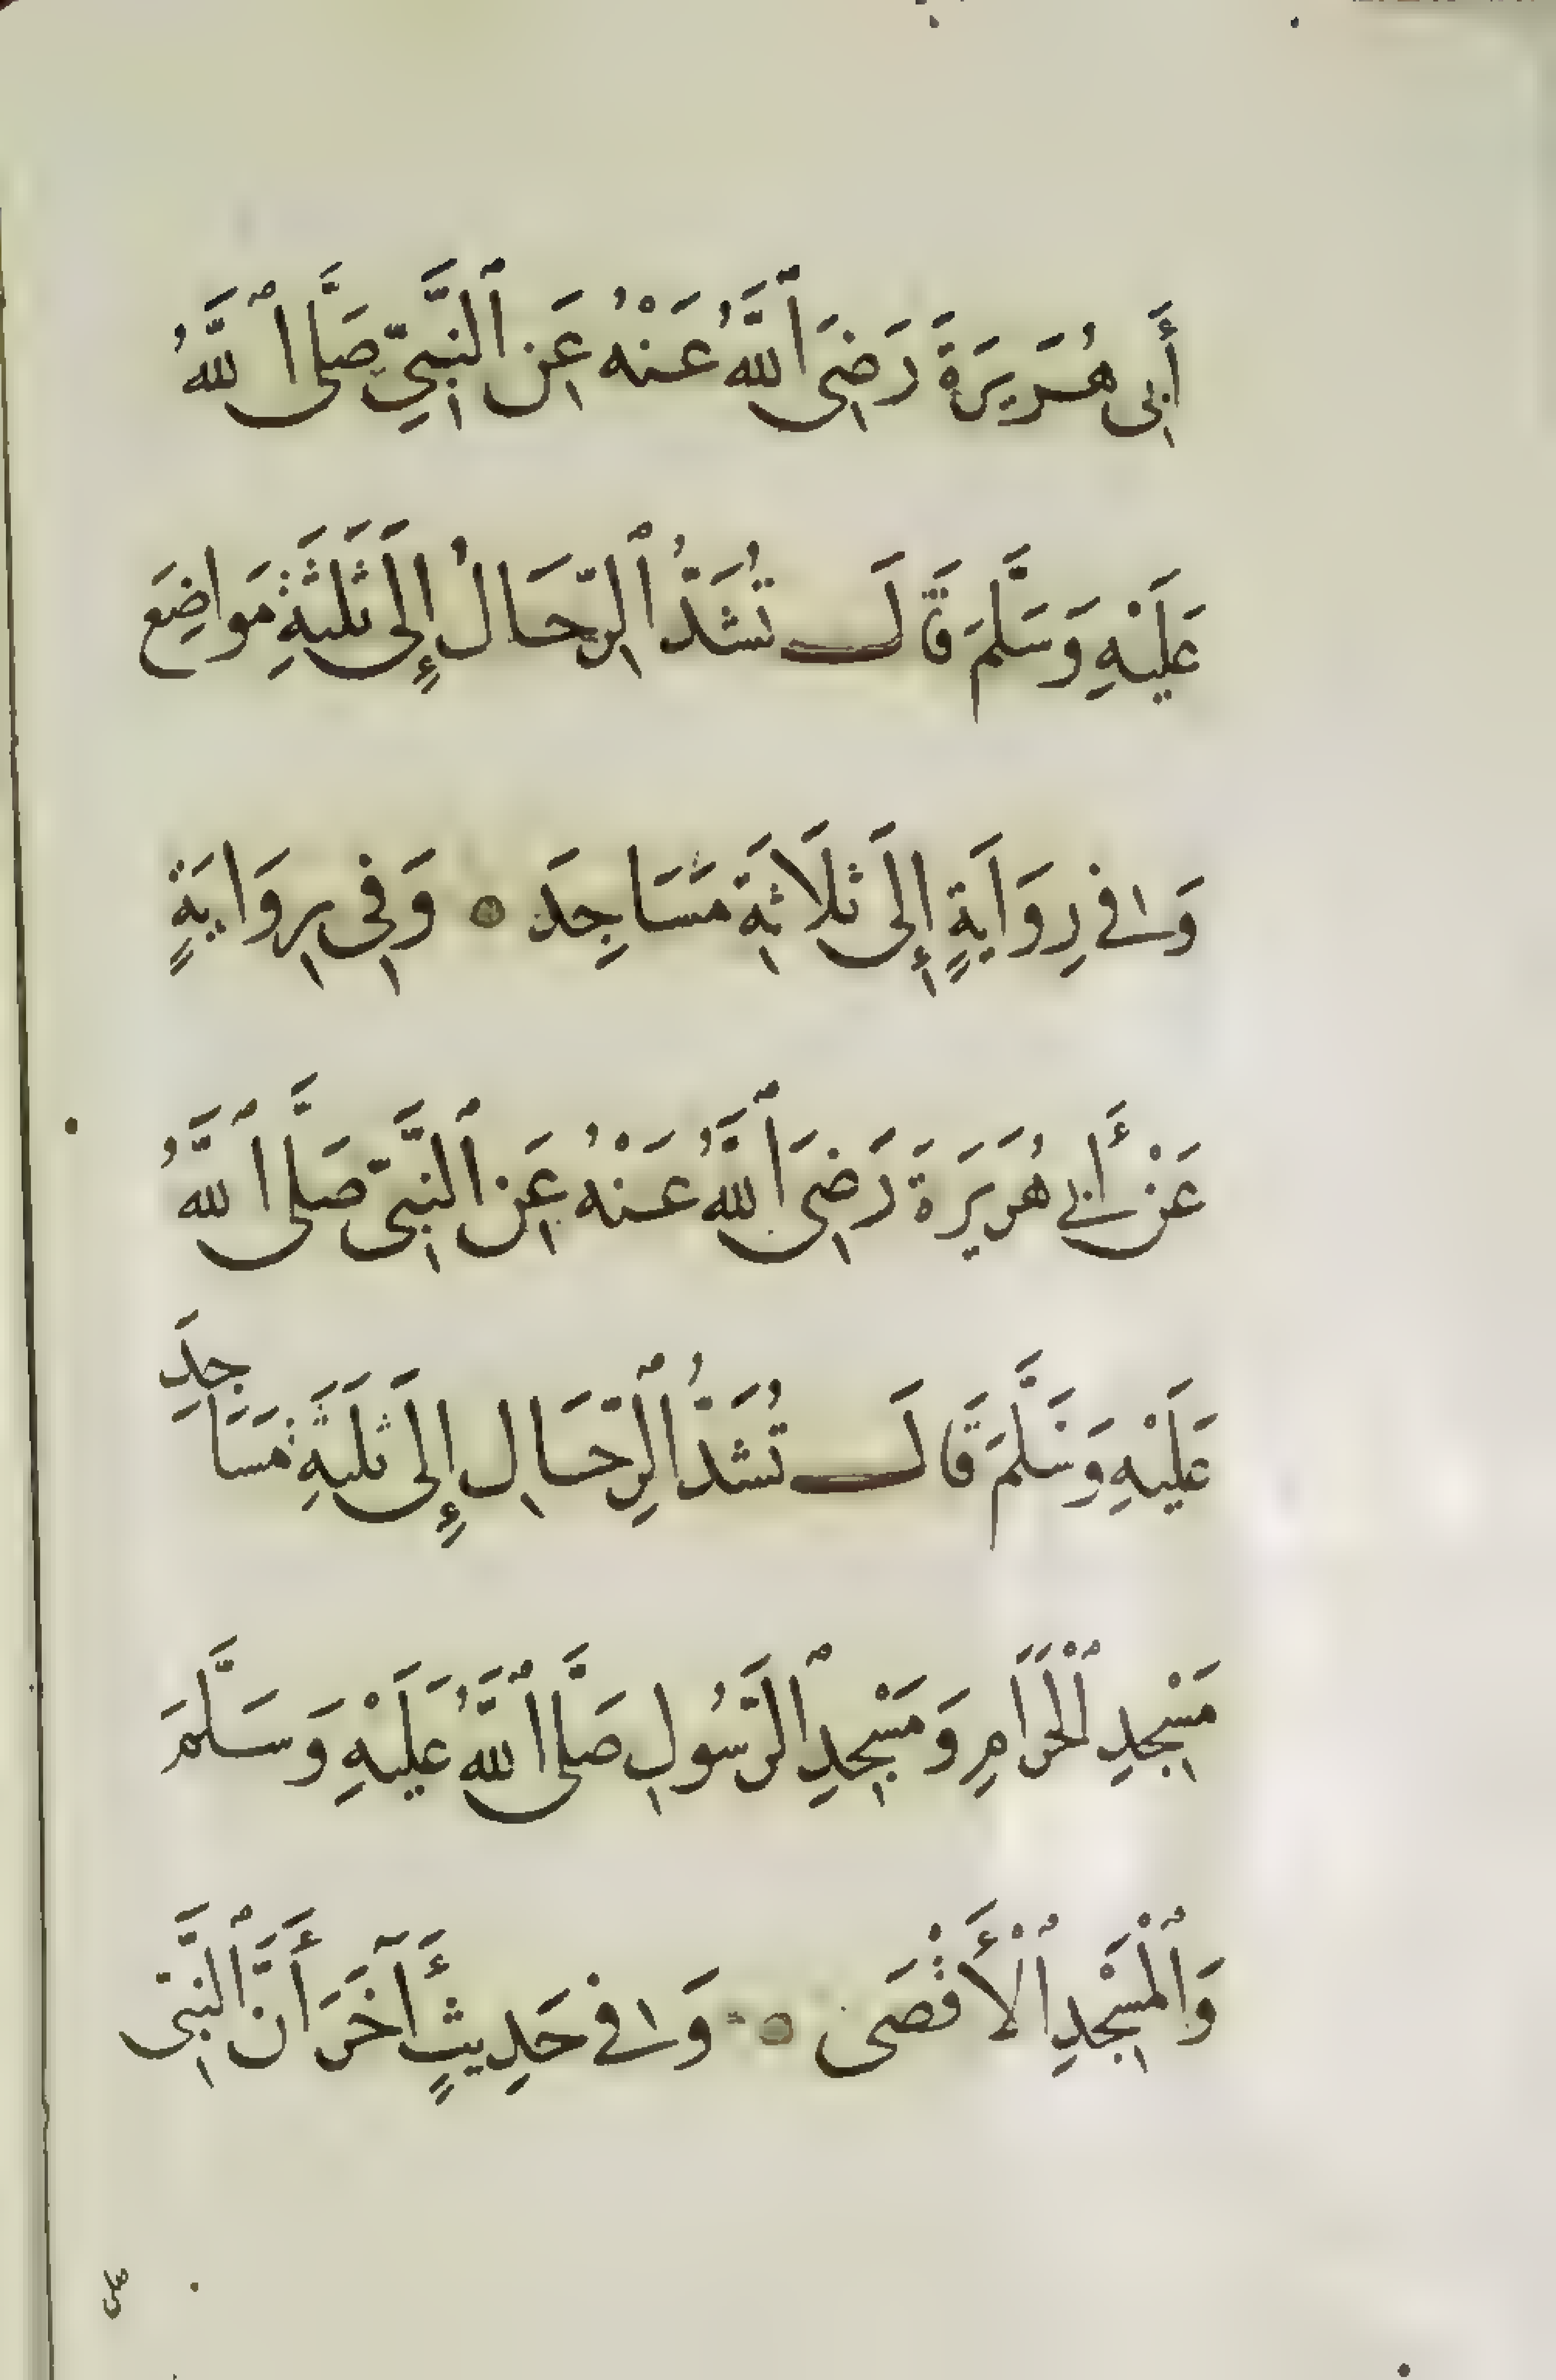 أَبِي هُرَيرَةَ رَضِيَ ٱللَّهُ عَنْهُ عَنِ ٱلنَّبِيِّ صَلَّى ٱللَّهُ
عَلَيْهِ وَسَلَّمَ قَالَ تُشَدُّ ٱلرِّحَالُ إِلَى ثَلَثَةِ مَوَاضِعَ
وَفِي رِوَايَةٍ إِلَى ثَلَاثَةِ مَسَاجِدَ ۝ وَفِي رِوَايَةٍ
عَنْ أَبِي هُرَيَرَةَ رَضِيَ ٱللَّهُ عَنْهُ عَنِ ٱلنَّبِيِّ صَلَّى ٱللَّهُ
عَلَيْهِ وَسَلَّمَ قَالَ تُشَدُّ ٱلرِّحَالِ إِلَى ثَلَثَةِ مَسَاجِدَ
مَسْجِدِ ٱلْحَرَامِ وَمَسْجِدِ ٱلرَّسُولِ صَلَّى ٱللَّهُ عَلَيْهِ وَسَلَّمَ
وَٱلْمَسْجِدِ ٱلْأَقْصَى ۝ وَفِي حَدِيثٍ أَآخَرَ أَنَّ ٱلنَّبِيَّ